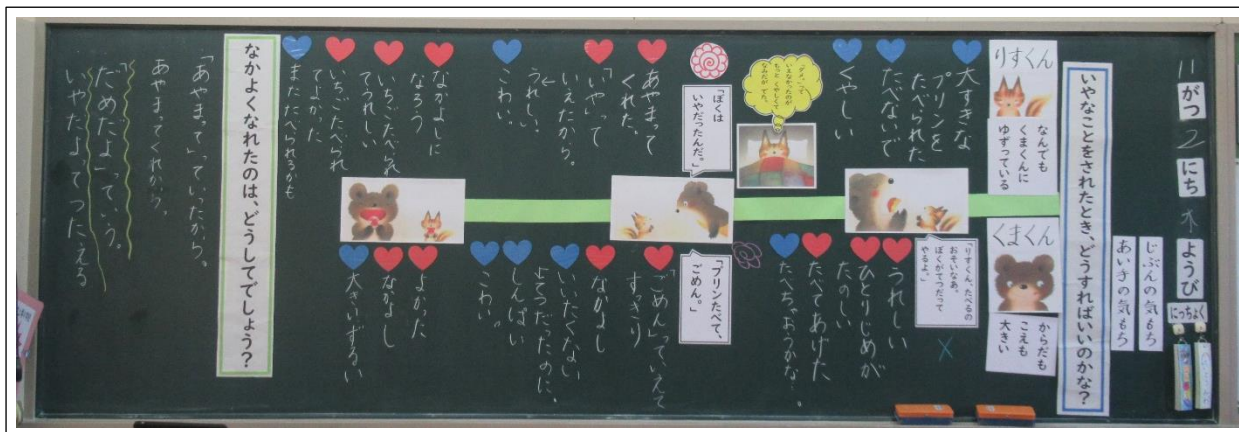 11がつ2にち木ようび
にっちょく
じぶんの気もち
あいての気もち
いやなことをされたとき、どうすればいいのかな?
りすくん
なんでも
くまくんに
ゆずっている
くまくん
からだも
こえも
大きい
大すきな
プリンを
たべられた
たべないで
くやしい
「りすくん、たべるの
おそいなあ。
ぼくがてつだって
やるよ。」
うれしい
ひとりじめが
たのしい
たべてあげた
たべちゃおうかな…
「ダメ。」って
いえなかったのが
もっと くやしくて
なみだが でた。
「ぼくは
いやだったんだ。」
「プリンたべて、
ごめん。」
あやまって
くれた。
「いや」って
いえたから。
うれしい
こわい。
「ごめん」っていえて
すっきり
なかよし
いいたくない
てつだったのに、
しんぱい
こわい。
なかよしに
なろう
いちごたべられ
てうれしい
いちごたべられ
てよかった
またたべられるかも
よかった
なかよし
大きいずるい
なかよくなれたのは、どうしてでしょう?
「あやまって」っていったから。
あやまってくれから。
「だめだよ」っていう。
いやだよってつたえる